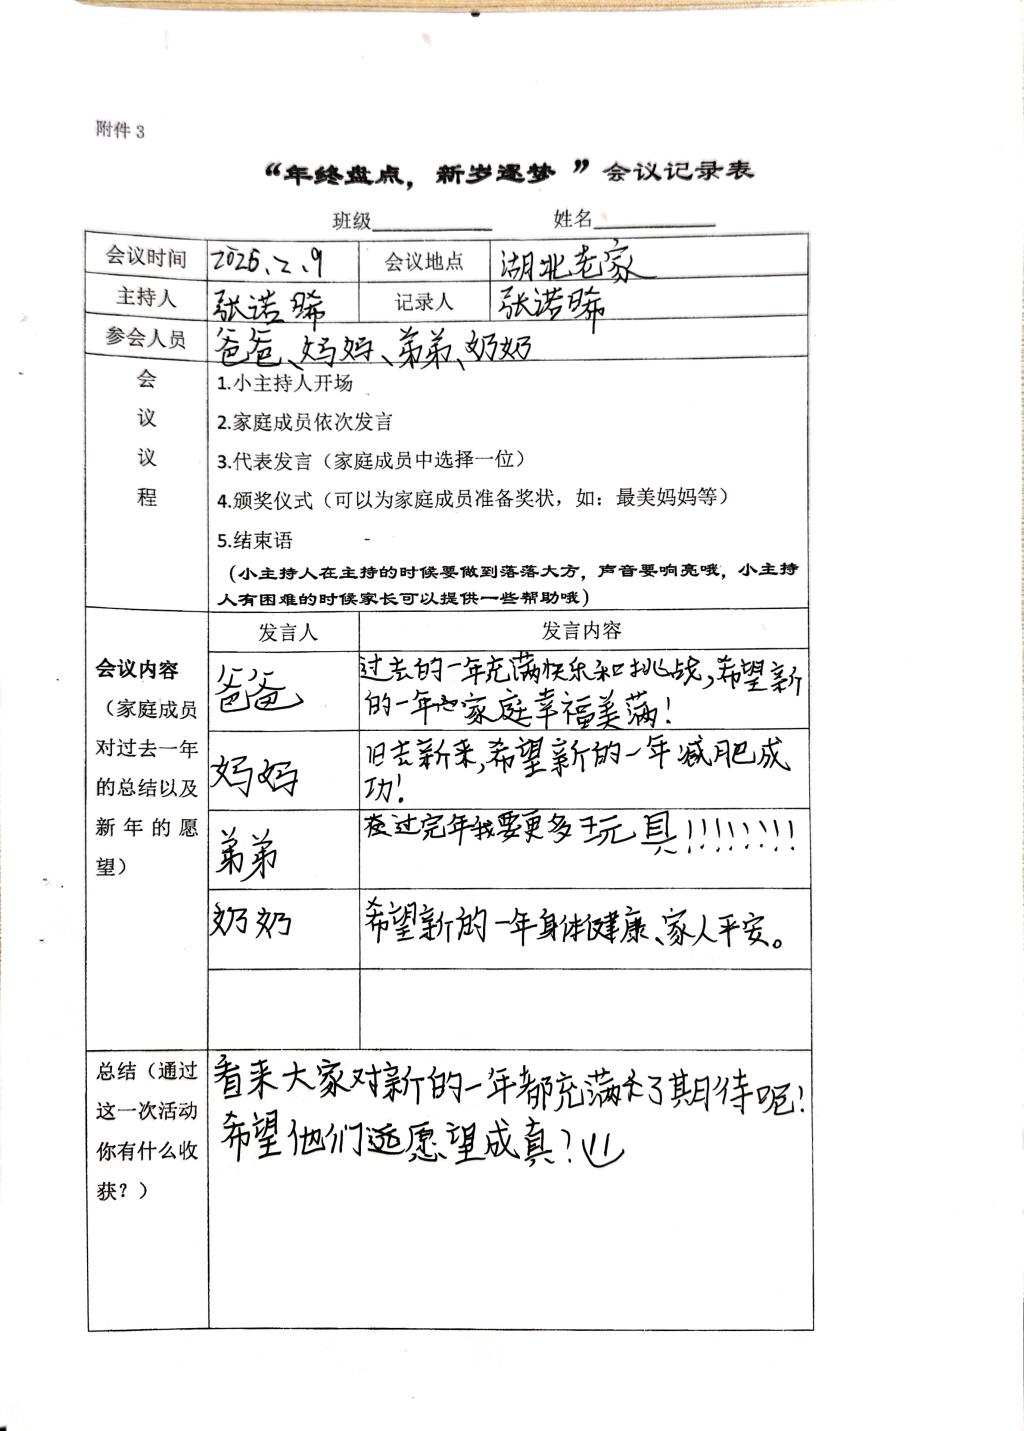 附件3
“年终盘点，新岁逐梦 ”会议记录表
班级 姓名
会议时间 2026.2.9 会议地点 湖北老家
主持人 张诺晞 记录人 张诺晞
参会人员 爸爸、妈妈、弟弟、奶奶
会
议
议
程
1.小主持人开场
2.家庭成员依次发言
3.代表发言（家庭成员中选择一位）
4.颁奖仪式（可以为家庭成员准备奖状，如：最美妈妈等）
5.结束语
（小主持人在主持的时候要做到落落大方，声音要响亮哦，小主持
人有困难的时候家长可以提供一些帮助哦）
会议内容
（家庭成员
对过去一年
的总结以及
新年的愿
望）
发言人 发言内容
爸爸 过去的一年充满快乐和挑战，希望新
的一年家庭幸福美满！
妈妈 旧去新来，希望新的一年减肥成
功！
弟弟 在过完年我要更多玩具！！！！！！！！
奶奶 希望新的一年身体健康、家人平安。
总结（通过
这一次活动
你有什么收
获？）
看来大家对新的一年都充满了期待呢！
希望他们愿望成真？